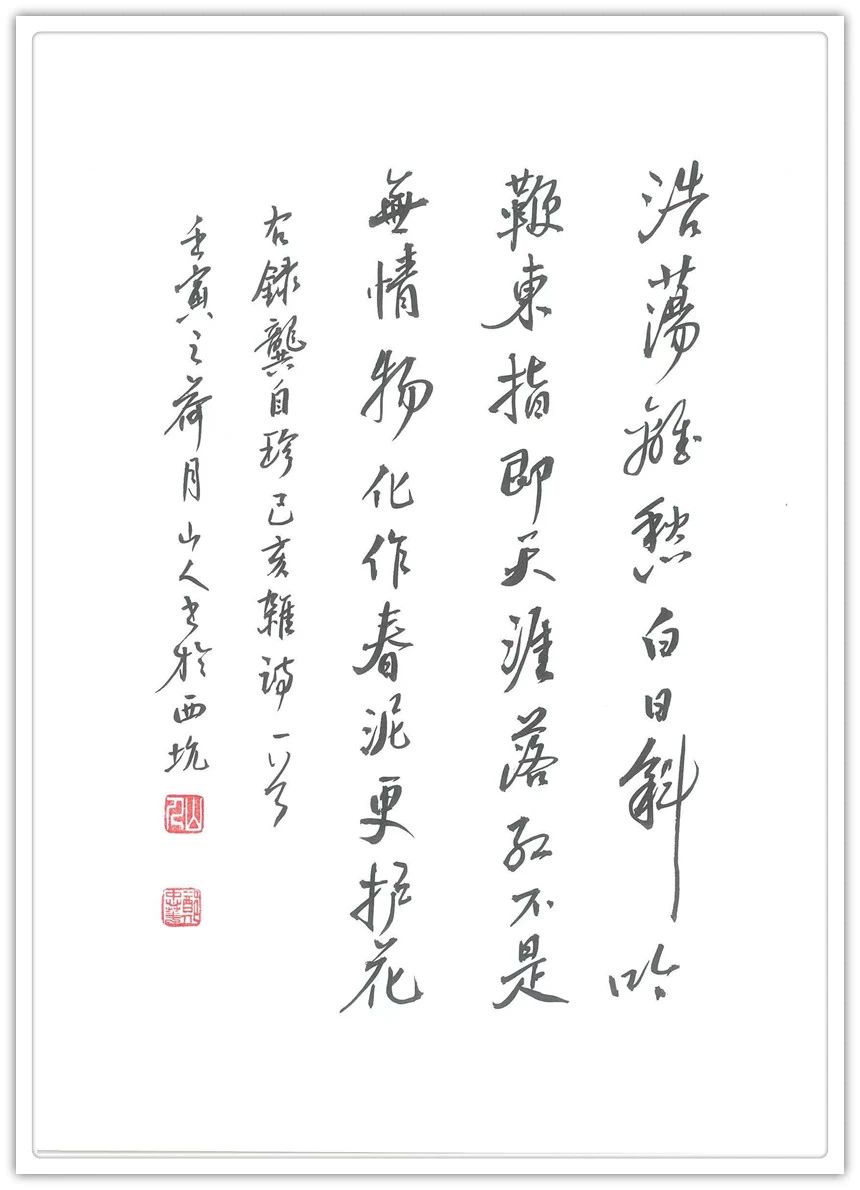 浩蕩離愁白日斜吟
鞭東指即天涯落红不是
無情物化作春泥更护花
右録龔自珍己亥雜诗一首
壬寅之荷月山人书於西坑
山人